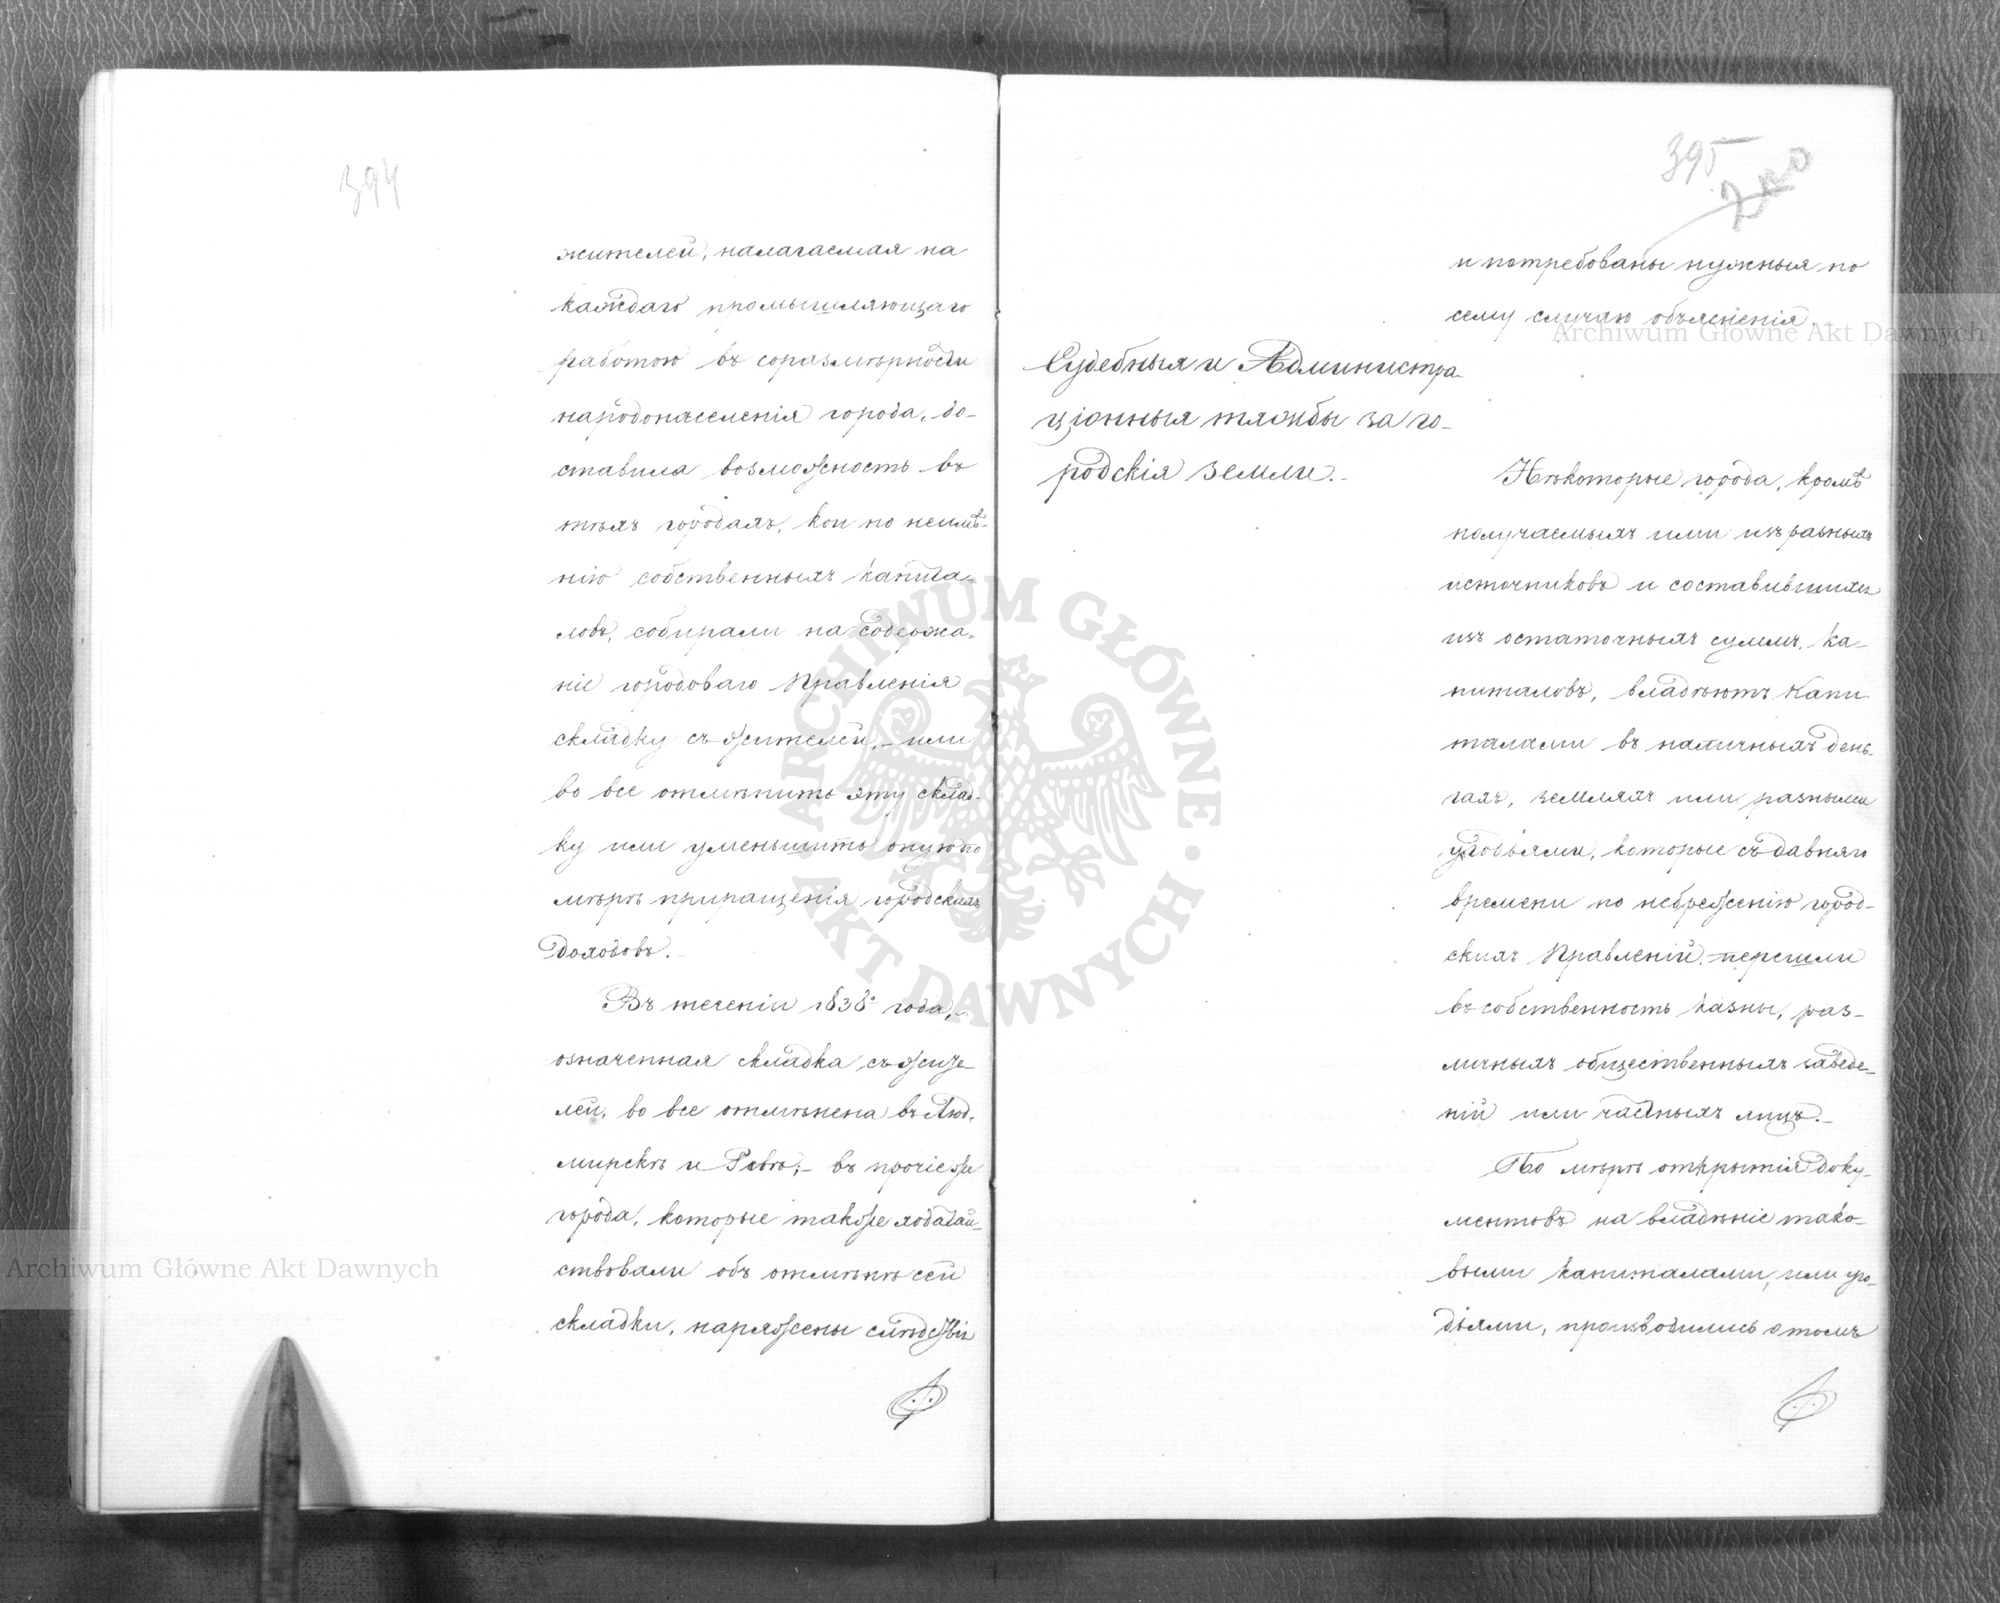 394
жителей, налагаемая на
каждаго промышляющаго
работою въ соразмѣрности
народонаселенія города, до-
ставила возможность въ
тѣхъ городахъ, кои по неимѣ-
нію собственныхъ капита-
ловъ, собирали на содержа-
ніе городоваго Правленія
складку съ жителей,- или
во все отмѣнить эту склад-
ку или уменьшить оную по
мѣрѣ приращенія городскихъ
доходовъ.-
Въ теченіи 1838о года,
означенная складка съ жите-
лей, во все отмѣнена въ
и въ прочіе же
города, которые также ходатай-
ствовали объ отмѣнѣ сей
складки, наряжены слѣдствія
395
и потребованы нужныя по
сему случаю объясненія.
Судебныя и Администра-
ціонныя тяжбы за го-
родскія земли.-
Нѣкоторые города, кромѣ
получаемыхъ ими изъ разныхъ
источниковъ и составившихся
изъ остаточныхъ суммъ, ка-
питаловъ, владѣютъ капи
талами въ наличныхъ день-
гахъ, земляхъ или разными
угодьями, которые съ давняго
времени по небреженію город-
скихъ Правленій, перешли
въ собственность казны, раз-
личныхъ общественныхъ заведе-
ній или частныхъ лицъ.-
По мѣрѣ открытія доку-
ментовъ на владѣніе тако-
выми капиталами, или уго-
діями, производились о томъ
Archiwum Główne Akt Dawnych
Archiwum Główne Akt Dawnych
ARCHIWUM GŁÓWNE · AKT DAWNYCH ·